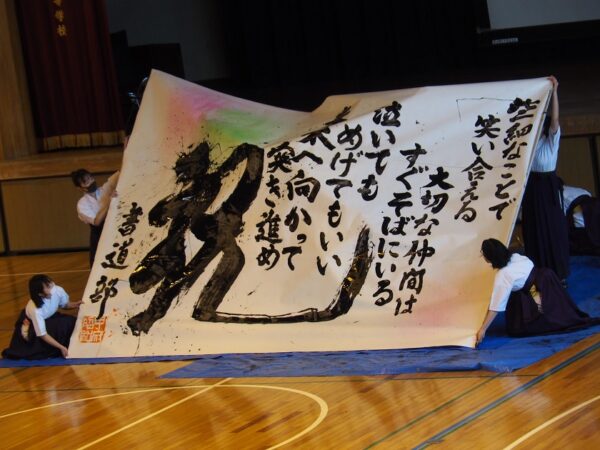 些細なことで
笑い合える
大切な仲間は
すぐそばにいる
泣いても
めげてもいい
へ向かって
突き進め
祝
書道部
学校